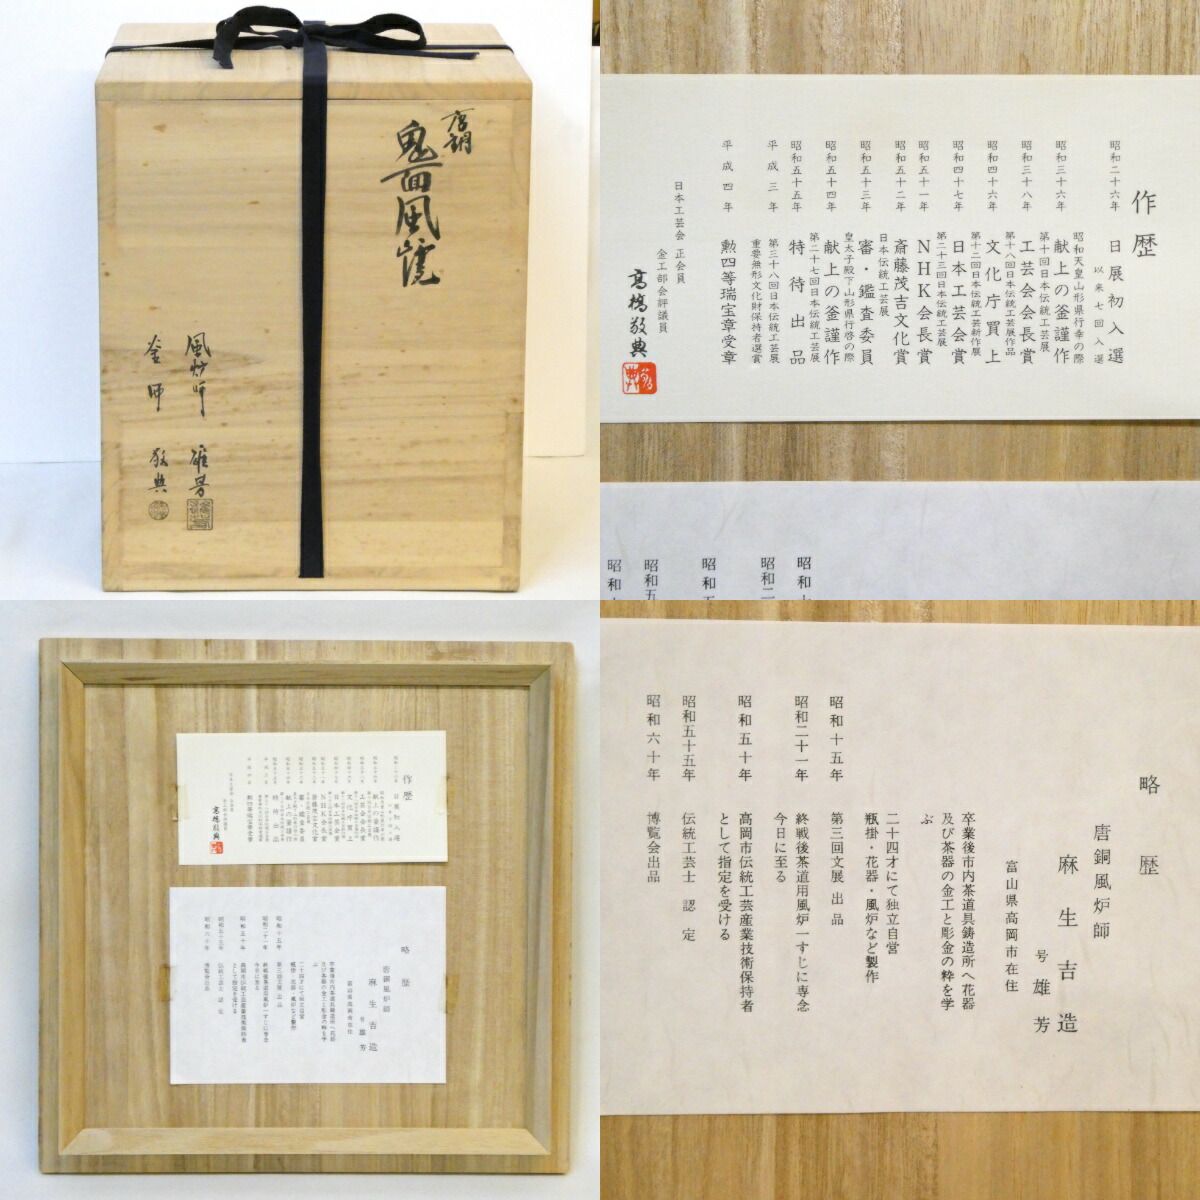 唐銅
鬼面風炉
風炉師 雄芳
釜師 敬典
作歴
昭和二十六年 日展初入選
以来七回入選
昭和三十六年 昭和天皇山形県行幸の際
献上の釜謹作
昭和三十八年 第十回日本伝統工芸展
工芸会会長賞
昭和四十六年 第十八回日本伝統工芸展作品
文化庁買上
昭和四十七年 第十二回日本伝統工芸新作展
日本工芸会賞
昭和五十一年 第二十三回日本伝統工芸展
NHK会長賞
昭和五十二年 斎藤茂吉文化賞
昭和五十三年 日本伝統工芸展
審・鑑査委員
昭和五十四年 皇太子殿下山形県行啓の際
献上の釜謹作
昭和五十五年 第二十七回日本伝統工芸展
特待出品
平成三年 第三十八回日本伝統工芸展
重要無形文化財保持者選賞
平成四年 勲四等瑞宝章受章
日本工芸会 正会員
金工部会評議員
高橋敬典
略歴
唐銅風炉師
麻生吉造
号 雄芳
富山県高岡市在住
卒業後市内茶道具鋳造所へ花器
及び茶器の金工と彫金の粋を学
ぶ
二十四才にて独立自営
瓶掛・花器・風炉など製作
昭和十五年 第三回文展出品
昭和二十一年 終戦後茶道用風炉一すじに専念
今日に至る
昭和五十年 高岡市伝統工芸産業技術保持者
として指定を受ける
昭和五十五年 伝統工芸士 認定
昭和六十年 博覧会出品